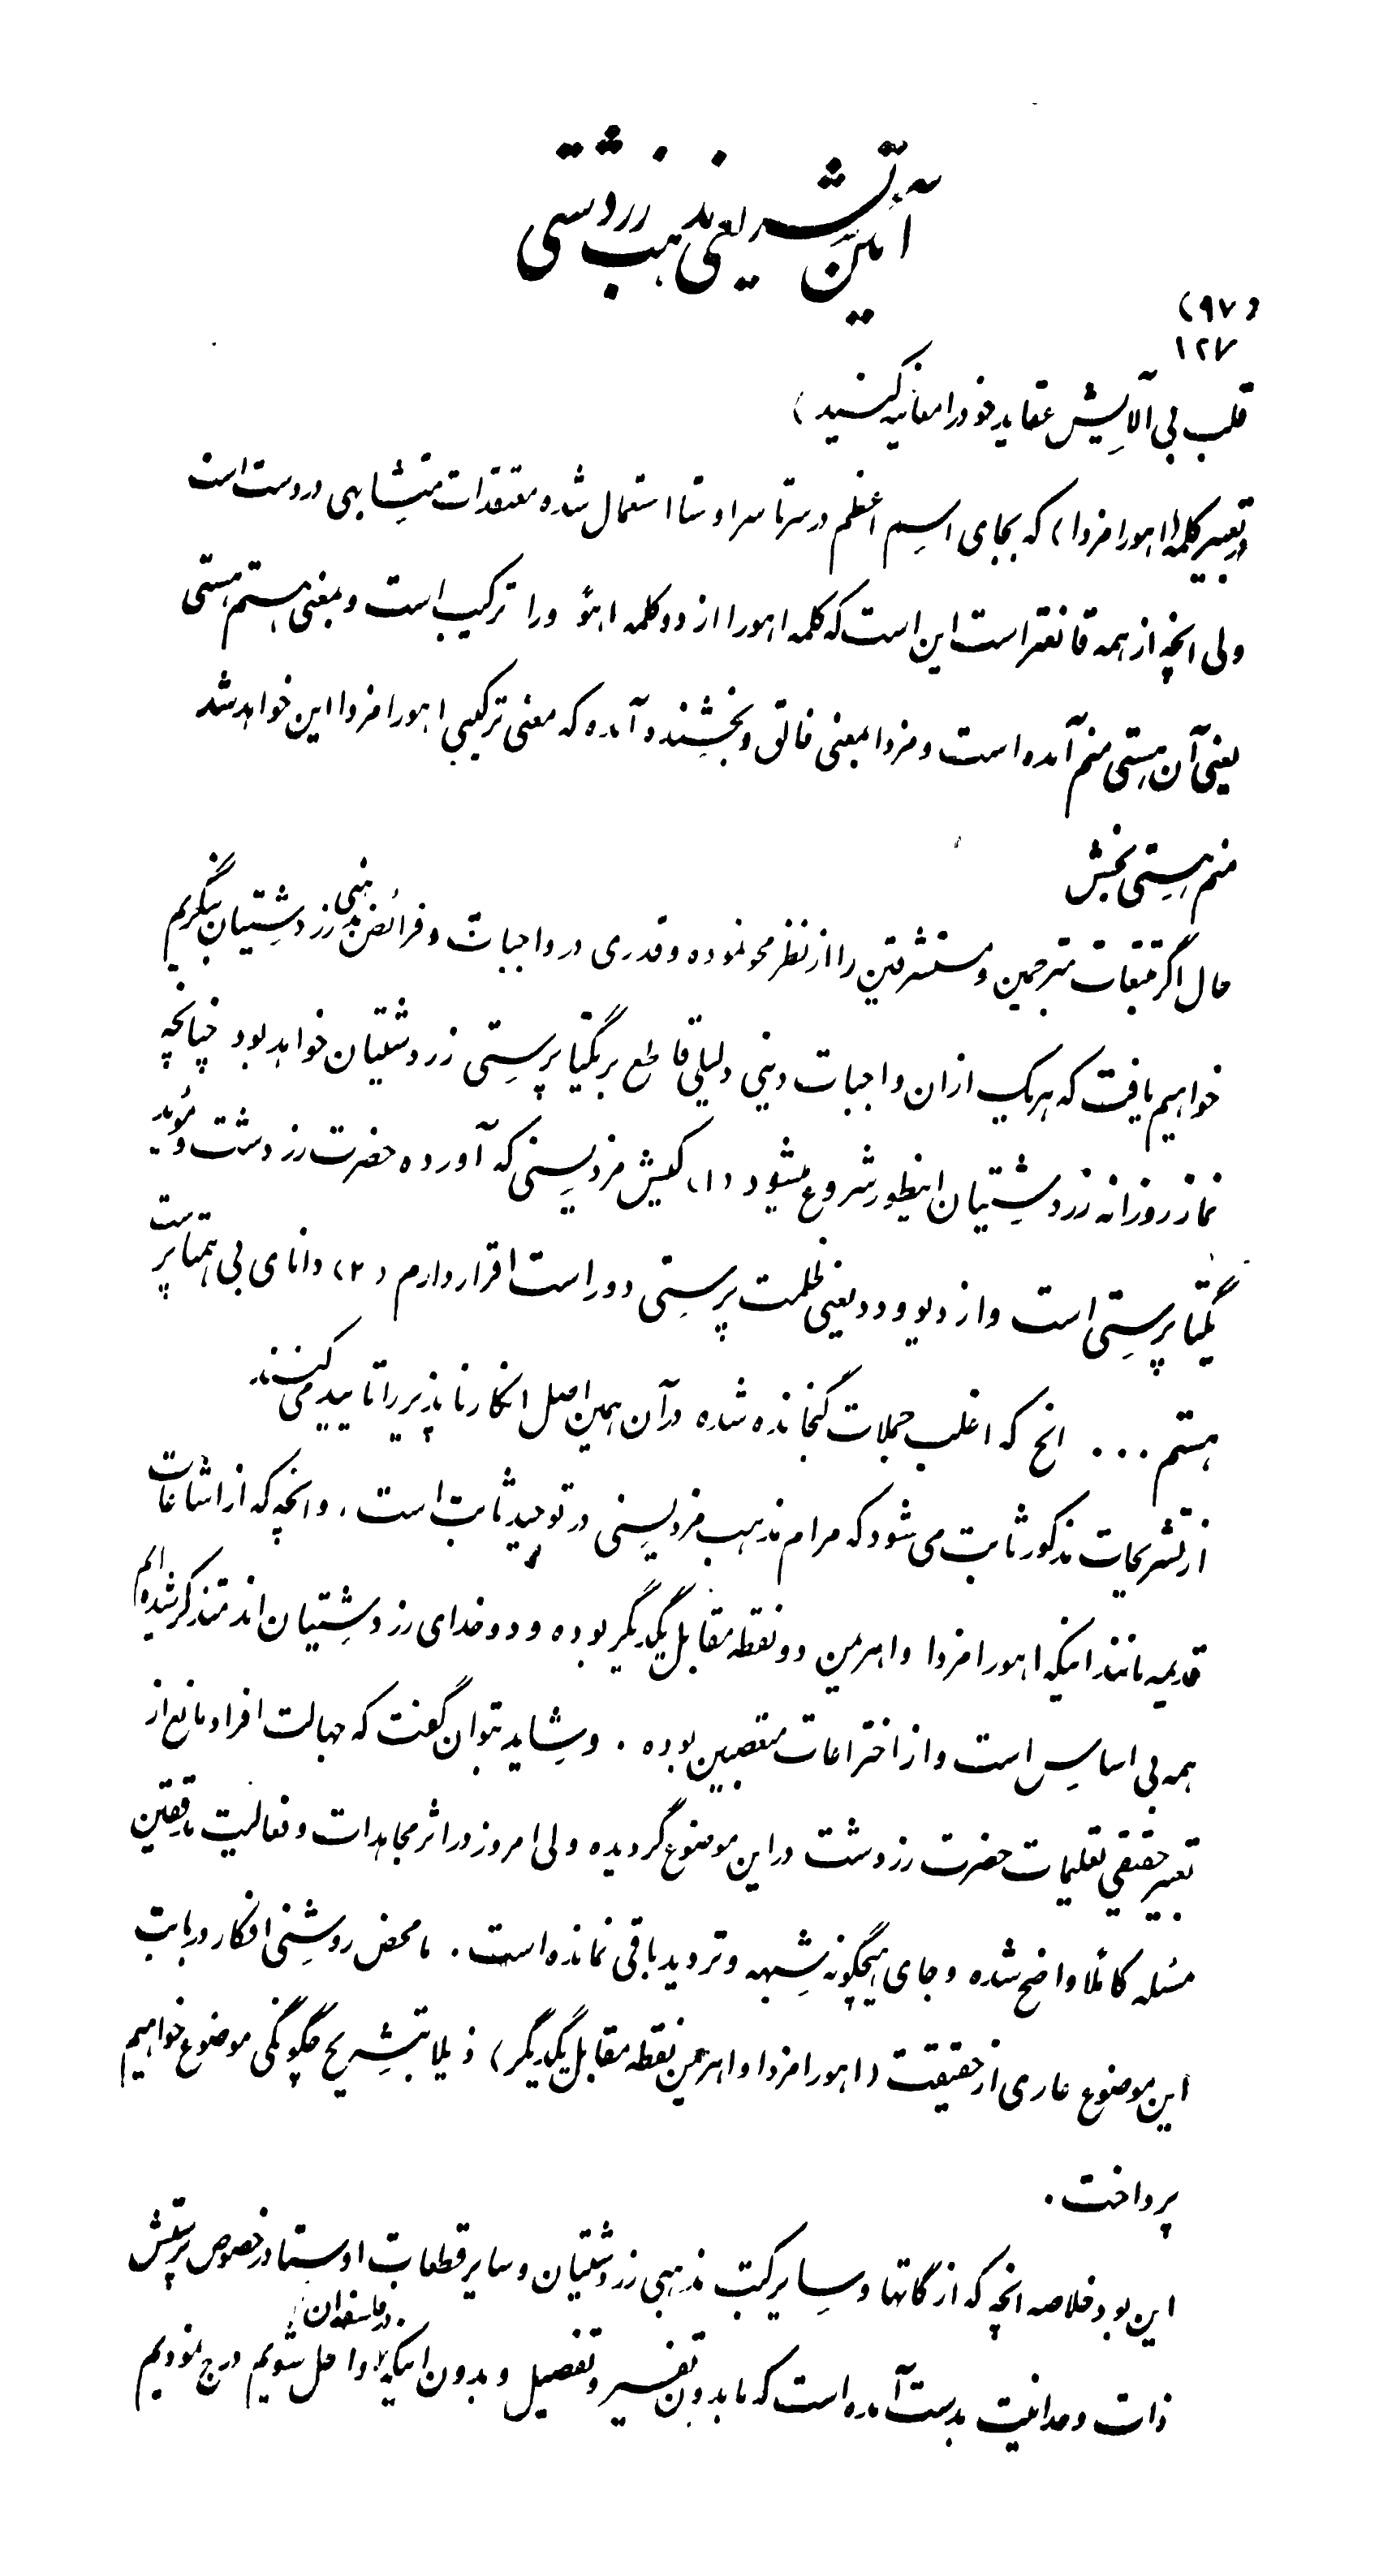 آئین زرتشتی یعنی مذهب زردشتی
(۹۷)
۱۲۷
قلب بی آلایش عقاید خود را معاینه کنید )
در تعبیر کلمه ( اهورا مزدا ) که بجای اسم اعظم در سرتاسر اوستا استعمال شده معتقدات متشابهی در دست است
ولی انچه از همه قانعتر است این است که کلمه اهورا از دو کلمه اهو و را ترکیب است و بمعنی هستم هستی
یعنی آن هستی منم آمده است و مزدا بمعنی خالق و بخشنده آمده که معنی ترکیبی اهورا مزدا این خواهد شد
منم هستی بخش
حال اگر تتبعات مترجمین و مستشرقین را از نظر محو نموده و قدری در واجبات و فرائض مذهبی زردشتیان بنگریم
خواهیم یافت که هریک از ان واجبات دینی دلیلی قاطع بر یکتا پرستی زردشتیان خواهد بود چنانچه
نماز روزانه زردشتیان اینطور شروع میشود (۱) کیش مزدیسنی که آورده حضرت زردشت و مؤید
یکتا پرستی است و از دیو و دد یعنی ظلمت پرستی دور است اقرار دارم (۲) دانای بی همتا پرست
هستم ... الخ که اغلب جملات گنجانده شده در آن همین اصل انکار ناپذیر را تایید می کنند
از تشریحات مذکور ثابت می شود که مرام مذهب مزدیسنی در توحید ثابت است . و انچه که از اشاعات
قدیمه مانند اینکه اهورا مزدا و اهرمن دو نقطه مقابل یکدیگر بوده و دو خدای زردشتیان اند متذکر شده ایم
همه بی اساس است و از اختراعات متعصبین بوده . و شاید بتوان گفت که جهالت افراد مانع از
تعبیر حقیقی تعلیمات حضرت زردشت در این موضوع گردیده ولی امروز در اثر مجاهدات و فعالیت ناقدین
مسئله کاملا واضح شده و جای هیچگونه شبهه و تردید باقی نمانده است . ما محض روشنی افکار در بابت
این موضوع عاری از حقیقت ( اهورا مزدا و اهرمن نقطه مقابل یکدیگر ) ذیلا بتشریح چگونگی موضوع خواهیم
پرداخت .
این بود خلاصه انچه که از گاتها و سایر کتب مذهبی زردشتیان و سایر قطعات اوستا در خصوص پرستش
ذات وحدانیت بدست آمده است که ما بدون تفسیر و تفصیل و بدون اینکه در فلسفه ان داخل شویم درج نمودیم